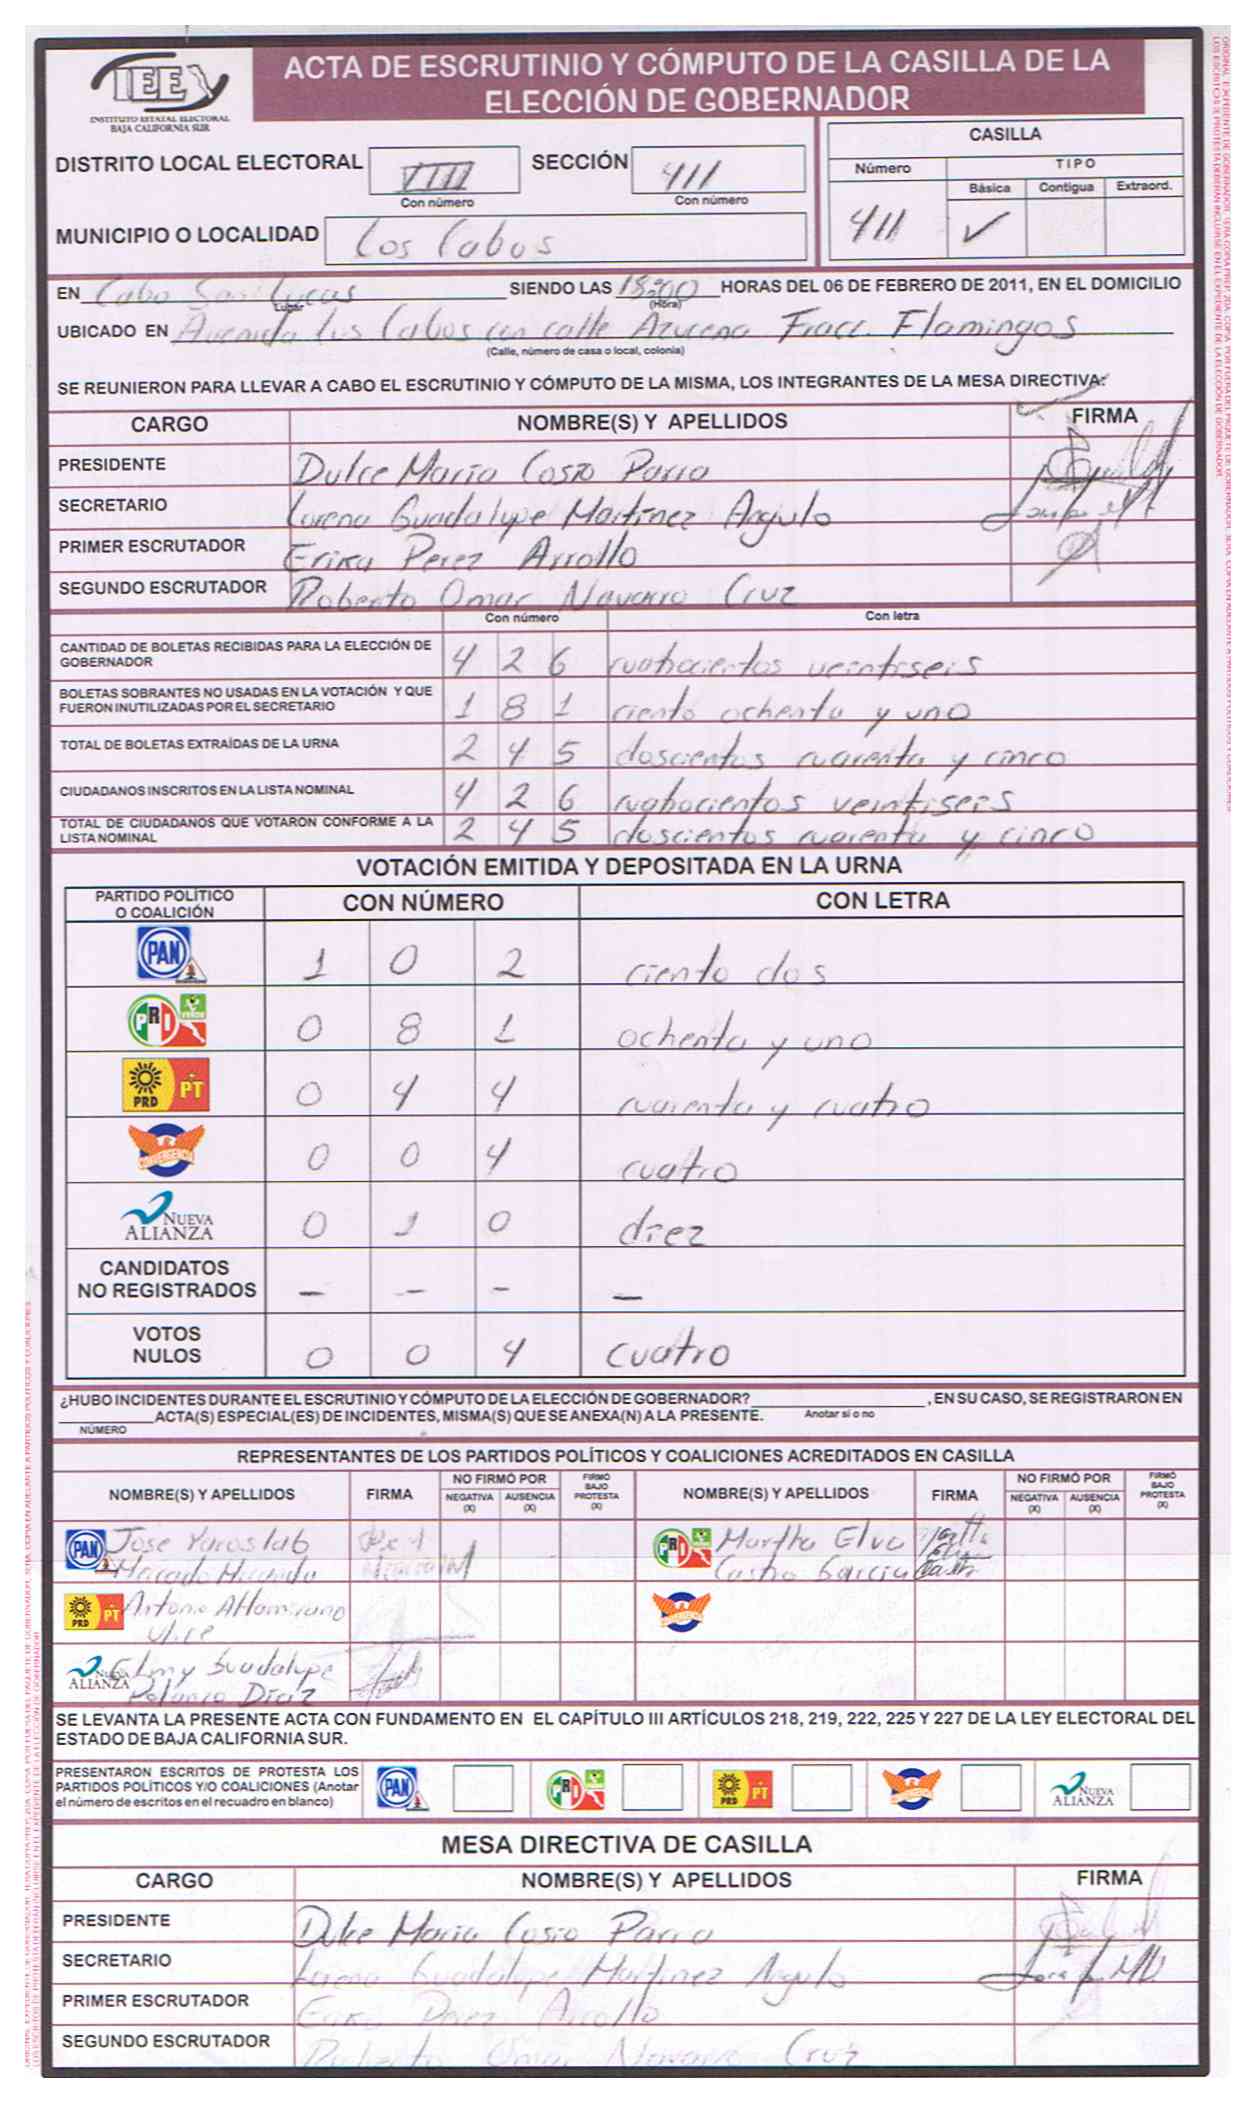 IEE
INSTITUTO ESTATAL ELECTORAL
BAJA CALIFORNIA SUR
ACTA DE ESCRUTINIO Y CÓMPUTO DE LA CASILLA DE LA
ELECCIÓN DE GOBERNADOR
DISTRITO LOCAL ELECTORAL VIII SECCIÓN 411
Con número Con número
MUNICIPIO O LOCALIDAD Los Cabos
CASILLA
Número TIPO
Básica Contigua Extraord.
411 ✓
EN Cabo San Lucas SIENDO LAS 18:00 HORAS DEL 06 DE FEBRERO DE 2011, EN EL DOMICILIO
Lugar (Hora)
UBICADO EN Avenida Los Cabos con calle Azucena Fracc. Flamingos
(Calle, número de casa o local, colonia)
SE REUNIERON PARA LLEVAR A CABO EL ESCRUTINIO Y CÓMPUTO DE LA MISMA, LOS INTEGRANTES DE LA MESA DIRECTIVA:
CARGO NOMBRE(S) Y APELLIDOS FIRMA
PRESIDENTE Dulce Maria Cosio Parra
SECRETARIO Lorena Guadalupe Martinez Angulo
PRIMER ESCRUTADOR Erika Perez Arrollo
SEGUNDO ESCRUTADOR Roberto Omar Navarro Cruz
Con número Con letra
CANTIDAD DE BOLETAS RECIBIDAS PARA LA ELECCIÓN DE
GOBERNADOR 4 2 6 cuatrocientos veintiseis
BOLETAS SOBRANTES NO USADAS EN LA VOTACIÓN Y QUE
FUERON INUTILIZADAS POR EL SECRETARIO 1 8 1 ciento ochenta y uno
TOTAL DE BOLETAS EXTRAÍDAS DE LA URNA 2 4 5 doscientos cuarenta y cinco
CIUDADANOS INSCRITOS EN LA LISTA NOMINAL 4 2 6 cuatrocientos veintiseis
TOTAL DE CIUDADANOS QUE VOTARON CONFORME A LA
LISTA NOMINAL 2 4 5 doscientos cuarenta y cinco
VOTACIÓN EMITIDA Y DEPOSITADA EN LA URNA
PARTIDO POLÍTICO
O COALICIÓN CON NÚMERO CON LETRA
PAN 1 0 2 ciento dos
PRI VERDE 0 8 1 ochenta y uno
PRD PT 0 4 4 cuarenta y cuatro
CONVERGENCIA 0 0 4 cuatro
NUEVA ALIANZA 0 1 0 diez
CANDIDATOS
NO REGISTRADOS – – – –
VOTOS
NULOS 0 0 4 cuatro
¿HUBO INCIDENTES DURANTE EL ESCRUTINIO Y CÓMPUTO DE LA ELECCIÓN DE GOBERNADOR? , EN SU CASO, SE REGISTRARON EN
ACTA(S) ESPECIAL(ES) DE INCIDENTES, MISMA(S) QUE SE ANEXA(N) A LA PRESENTE. Anotar si o no
NÚMERO
REPRESENTANTES DE LOS PARTIDOS POLÍTICOS Y COALICIONES ACREDITADOS EN CASILLA
NOMBRE(S) Y APELLIDOS FIRMA NO FIRMÓ POR NEGATIVA (X) AUSENCIA (X) FIRMÓ BAJO PROTESTA (X) NOMBRE(S) Y APELLIDOS FIRMA NO FIRMÓ POR NEGATIVA (X) AUSENCIA (X) FIRMÓ BAJO PROTESTA (X)
PAN Jose Yaroslab PRI Martha Elva
Mercado Miranda Castro Garcia
PRD PT Antonio Altamirano CONVERGENCIA
NUEVA ALIANZA Guadalupe
Polanco Diaz
SE LEVANTA LA PRESENTE ACTA CON FUNDAMENTO EN EL CAPÍTULO III ARTÍCULOS 218, 219, 222, 225 Y 227 DE LA LEY ELECTORAL DEL
ESTADO DE BAJA CALIFORNIA SUR.
PRESENTARON ESCRITOS DE PROTESTA LOS
PARTIDOS POLÍTICOS Y/O COALICIONES (Anotar
el número de escritos en el recuadro en blanco) PAN PRI PRD PT CONVERGENCIA NUEVA ALIANZA
MESA DIRECTIVA DE CASILLA
CARGO NOMBRE(S) Y APELLIDOS FIRMA
PRESIDENTE Dulce Maria Cosio Parra
SECRETARIO Lorena Guadalupe Martinez Angulo
PRIMER ESCRUTADOR Erika Perez Arrollo
SEGUNDO ESCRUTADOR Roberto Omar Navarro Cruz